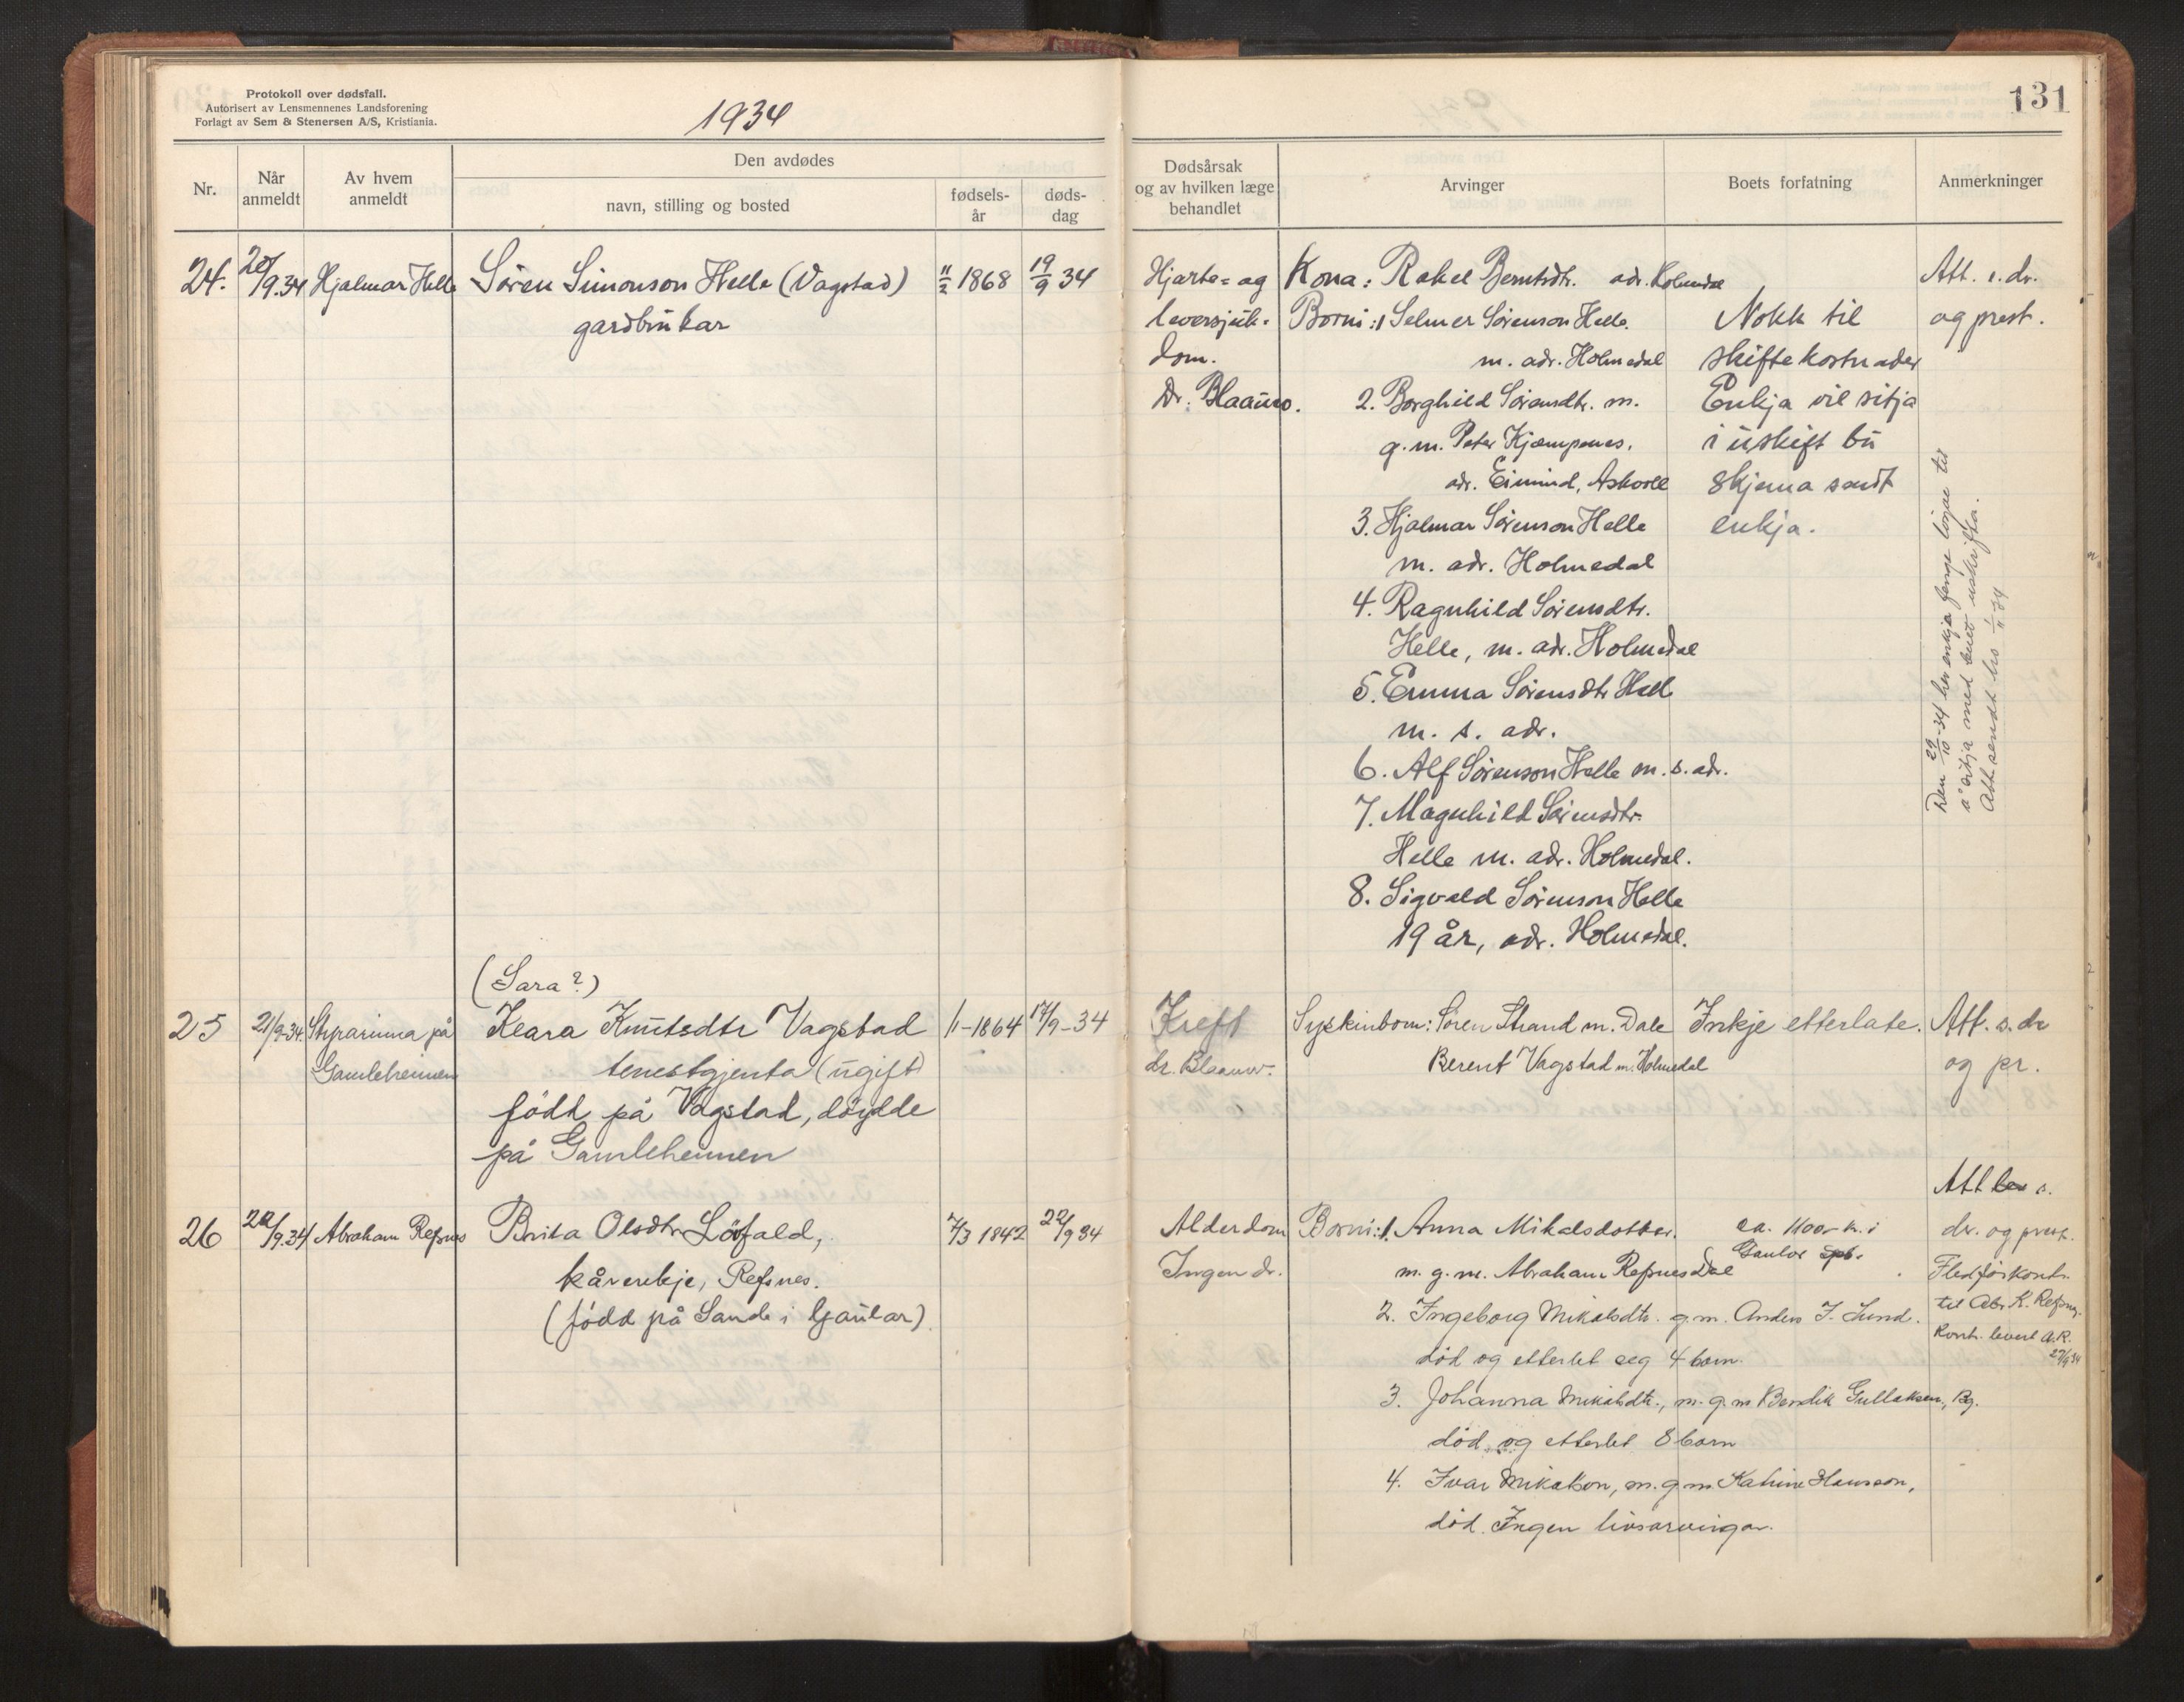 Protokoll over dødsfall.
Autorisert av Lensmennenes Landsforening
Forlagt av Sem & Stenersen A/S, Kristiania.
1934
131
Nr.
Når anmeldt
Av hvem anmeldt
Den avdødes
navn, stilling og bosted
fødsels-år
døds-dag
Dødsårsak og av hvilken læge behandlet
Arvinger
Boets forfatning
Anmerkninger
24. 20/9.34 Hjalmar Helle Søren Simonson Helle (Vagstad) 11/2 1868 19/9 34
gardbrukar
Hjarte= og
leversjuk=
dom.
Dr. Blaauw.
Kona: Rakel Berntsdtr. adr. Holmedal
Borni: 1 Selmer Sørenson Helle.
m. adr. Holmedal
2. Borghild Sørensdtr. m.
g.m. Peter Kjempenes,
adr. Eimind, Askvoll
3. Hjalmar Sørenson Helle
m. adr. Holmedal
4. Ragnhild Sørensdtr.
Helle, m. adr. Holmedal
5. Emma Sørensdtr Helle
m. s. adr.
6. Alf Sørenson Helle m. s. adr.
7. Magnhild Sørensdtr.
Helle m. adr. Holmedal.
8. Sigvald Sørenson Helle
19 år, adr. Holmedal.
Nokk til
skiftekostnader
Enkja vil sitja
i uskift bu
Skjema sendt
enkja.
Att. s. dr.
og prest.
Den 29/10-34 her enkja fenge løyve til
å sitja med buet uskifta.
Att. sendt hro 1/11-34
(Sara?)
25 21/9-34. Styrarinna på Klara Knutsdtr Vagstad /1-1864 17/9-34
Gamleheimen tenestgjenta (ugift)
född på Vagstad, döydde
på Gamleheimen
Kreft
dr. Blaauw.
Syskinborn: Søren Strand m. Dale
Berent Vagstad m. Holmedal
Inkje etterlate.
Att. s. dr
og pr.
26 22/9.34 Abraham Refsnes Brita Olsdtr Lövfald, 7/3 1842 22/9 34
kårenkje, Refsnes.
(född på Sande i Gaular)
Alderdom
Ingen dr.
Borni: 1. Anna Mikalsdotter.
m. g. m. Abraham Refsnes Dale
2. Ingeborg Mikalsdtr. g.m. Anders J. Lund.
död og etterlet seg 4 born.
3. Johanna Mikalsdtr., m. g. m Bendik Gullaksen, Bg.
död og etterlet 8 born
4. Ivar Mikalson, m. g m Katrine Hansson,
död. Ingen livsarvingar.
ca. 1100- kr. i
Gaular spb.
Att s.
dr. og prest.
Fledförkontr.
til Abr K. Refsnes.
Kontr. levert A.R.
27/9 34